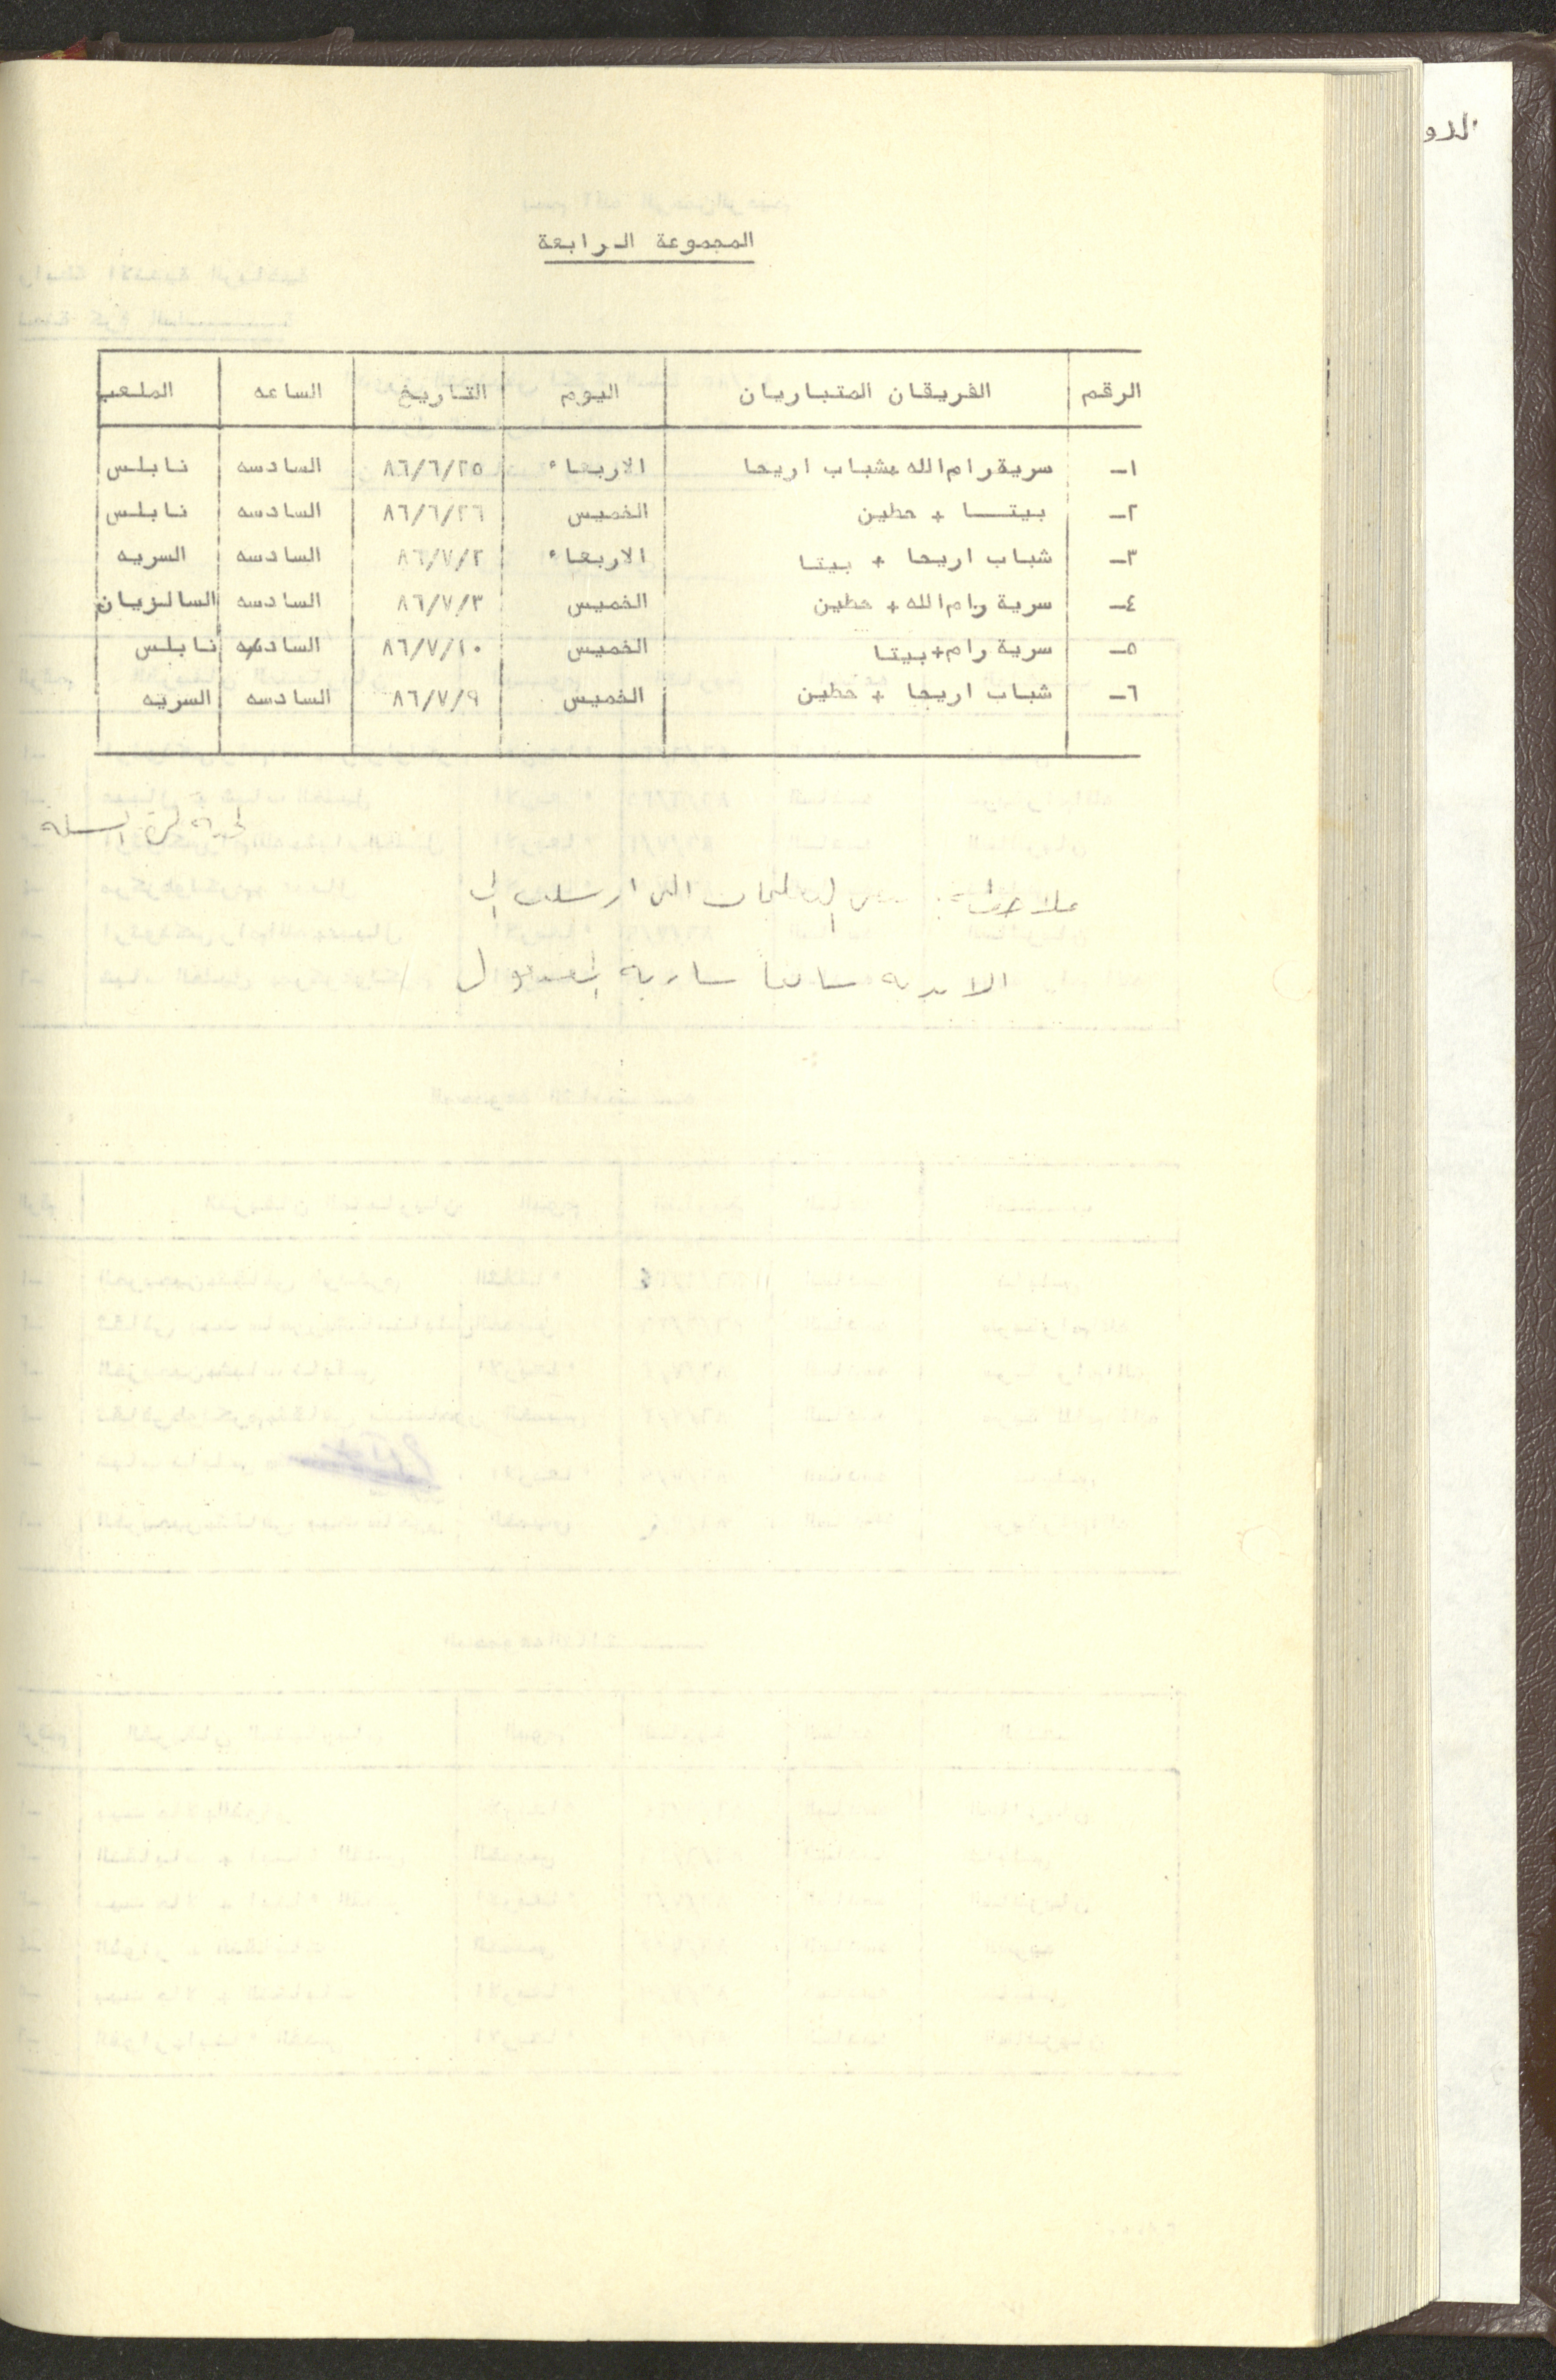 الدو
المجموعة الرابعة
الرقم الفريقان المتباريان اليوم التاريخ الساعه الملعب
١- سرية رام الله + شباب اريحا الاربعاء ٨٦/٦/٢٥ السادسه نابلس
٢- بيتا + حطين الخميس ٨٦/٦/٢٦ السادسه نابلس
٣- شباب اريحا + بيتا الاربعاء ٨٦/٧/٢ السادسه السريه
٤- سرية رام الله + حطين الخميس ٨٦/٧/٣ السادسه السالزيان
٥- سرية رام + بيتا الخميس ٨٦/٧/١٠ السادسه نابلس
٦- شباب اريحا + حطين الخميس ٨٦/٧/٩ السادسه السريه
لجنة كرة السلة
ملاحظة: التعليمات التي ارسلت الى
الاندية سابقا سارية المفعول